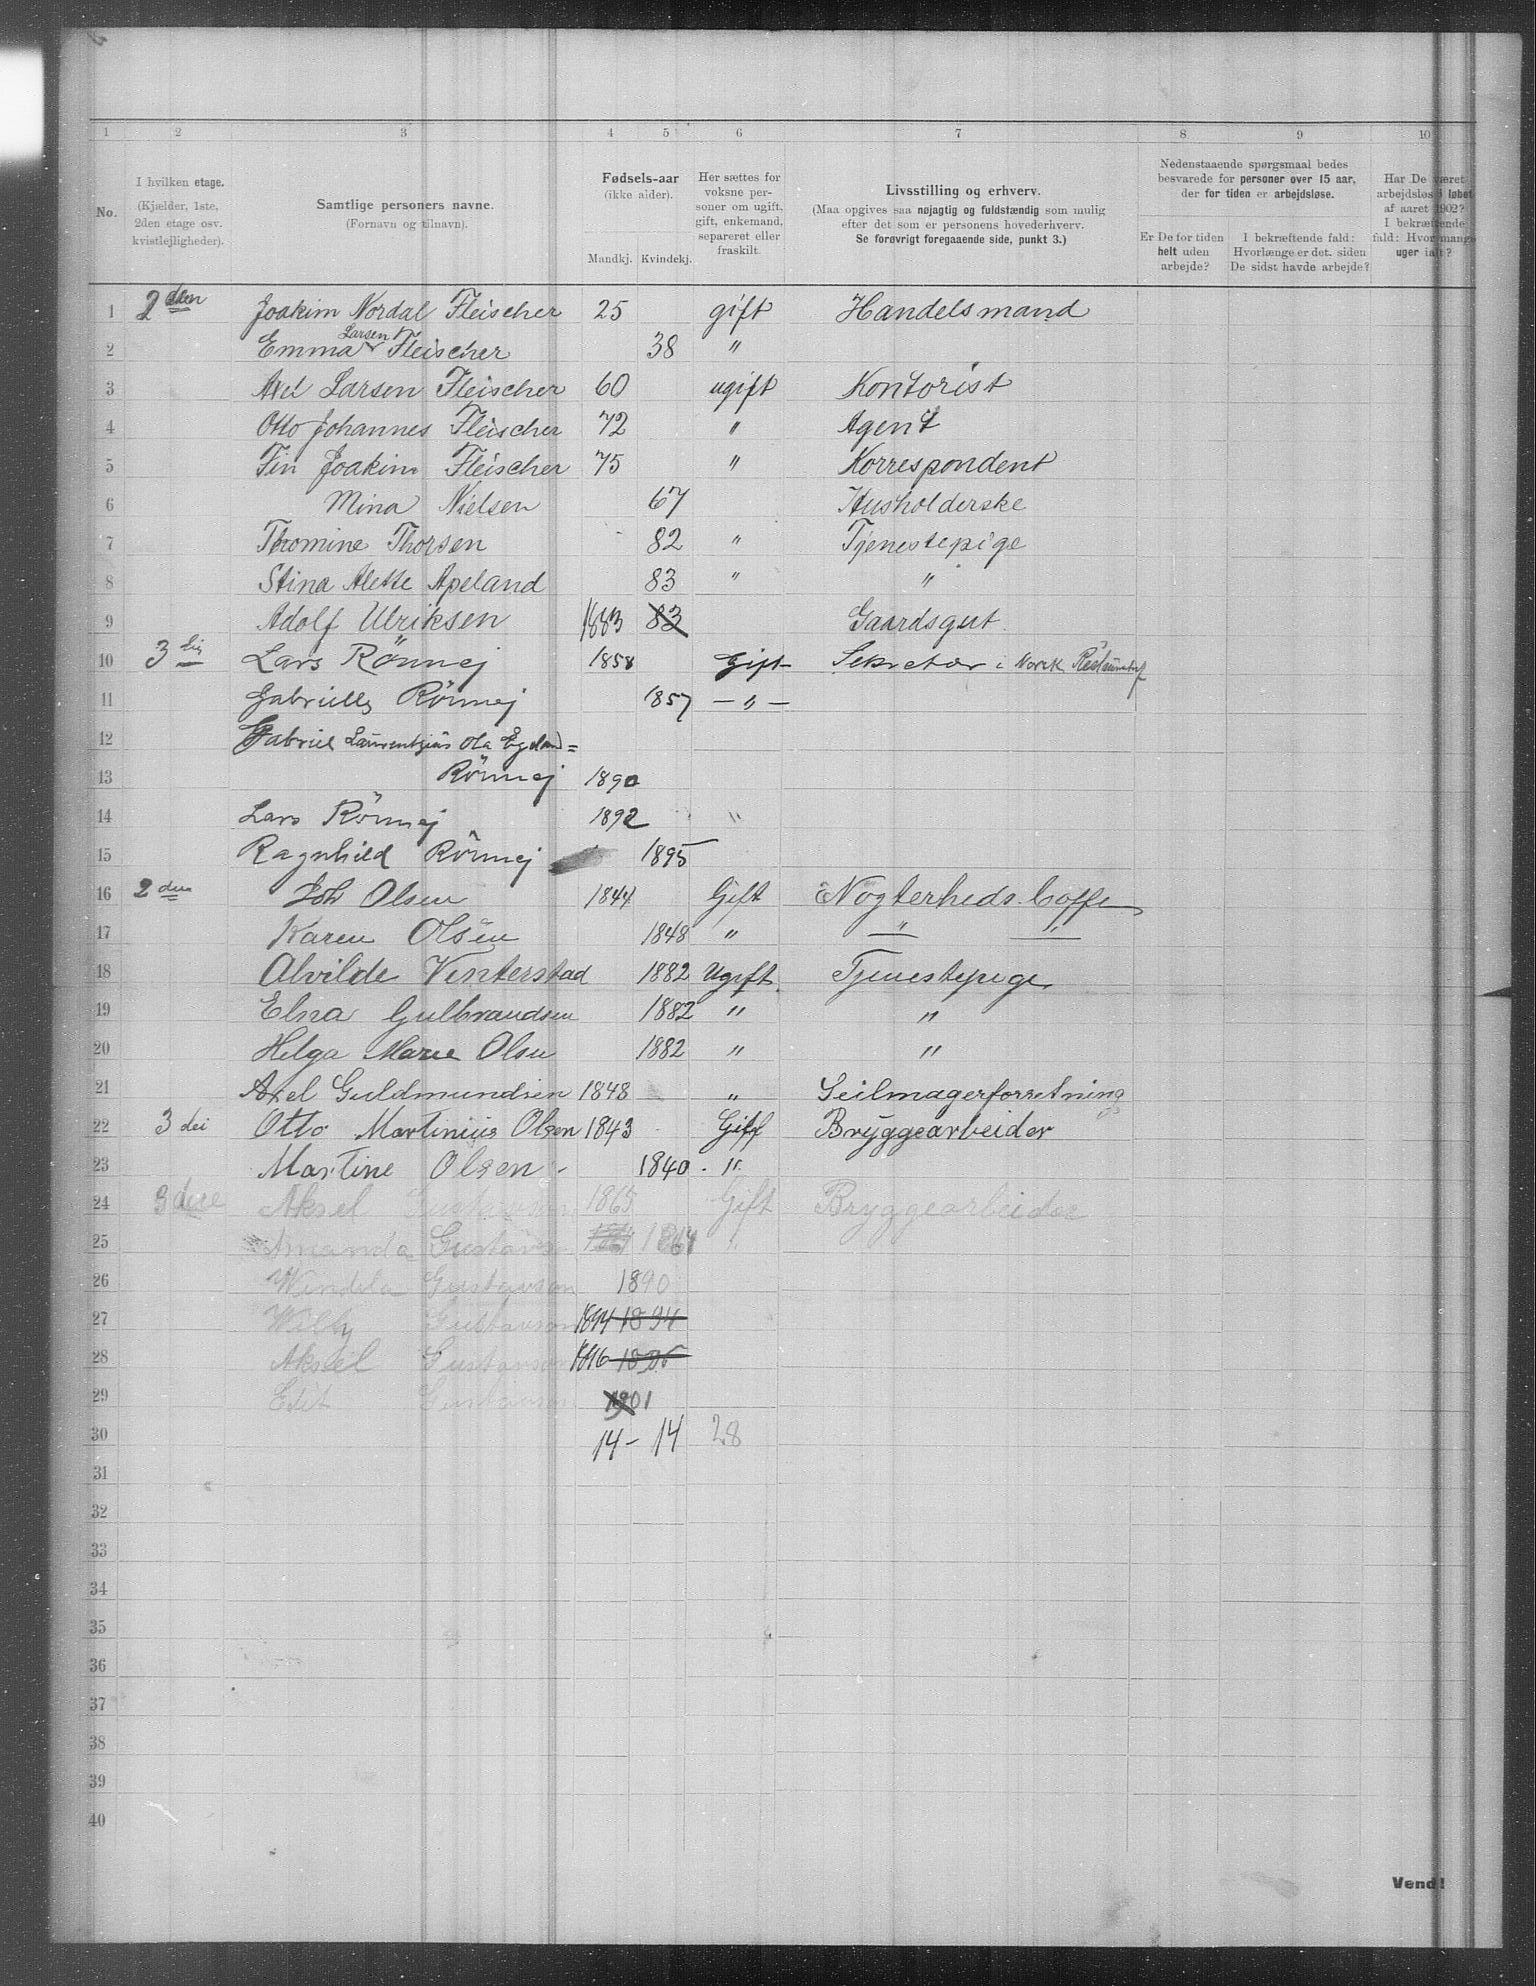 1 2 3 4 5 6 7 8 9 10
No.
I hvilken etage.
(Kjælder, 1ste,
2den etage osv.
kvistlejligheder).
Samtlige personers navne.
(Fornavn og tilnavn).
Fødsels-aar
(ikke alder).
Mandkj. Kvindekj.
Her sættes for
voksne per-
soner om ugift,
gift, enkemand,
separeret eller
fraskilt.
Livsstilling og erhverv.
(Maa opgives saa nøjagtig og fuldstændig som mulig
efter det som er personens hovederhverv.
Se forøvrigt foregaaende side, punkt 3.)
Nedenstaaende spørgsmaal bedes
besvarede for personer over 15 aar,
der for tiden er arbejdsløse.
Er De for tiden
helt uden
arbejde?
I bekræftende fald:
Hvorlænge er det. siden
De sidst havde arbejde?
Har De været
arbejdsløs i løbet
af aaret 1902?
I bekræftende
fald: Hvor mange
uger ialt?
1 2den Joakim Nordal Fleischer 25 gift Handelsmand
2 Emma Larsen Fleischer 38 "
3 Axel Larsen Fleischer 60 ugift Kontorist
4 Otto Johannes Fleischer 72 " Agent
5 Fin Joakim Fleischer 75 " Korrespondent
6 Mina Nielsen 67 Husholderske
7 Thomine Thorsen 82 " Tjenestepige
8 Stina Alette Apeland 83 " "
9 Adolf Ulriksen 1883 83 Gaardsgut
10 3 Lars Rönnej 1858 Gift Sekretær i Norsk
11 Gabrielle Rönnej 1857 — " —
12 Gabriel Laurentzius Ola Egeland=
13 Rönnej 1890
14 Lars Rönnej 1892 "
15 Ragnhild Rönnej 1895
16 2den Joh Olsen 1844 Gift Nögterheds Caffe
17 Karen Olsen 1848 " " "
18 Alvilde Vinterstad 1882 Ugift Tjenestepige
19 Elna Gulbrandsen 1882 " "
20 Helga Marie Olsen 1882 " "
21 Axel Guldmundsen 1848 " Seilmagerforretning
22 3 dei Otto Martinius Olsen 1843 Gift Bryggearbeider
23 Martine Olsen 1840 "
24 3 Aksel Gustavson 1865 Gift Bryggearbeider
25 Amanda Gustavson 1864 "
26 Wendela Gustavson 1890
27 Willy Gustavson 1894 1894
28 Aksel Gustavson 1896 1896
29 Edit Gustavson 1901
30 14 - 14 28
31
32
33
34
35
36
37
38
39
40
Vend!